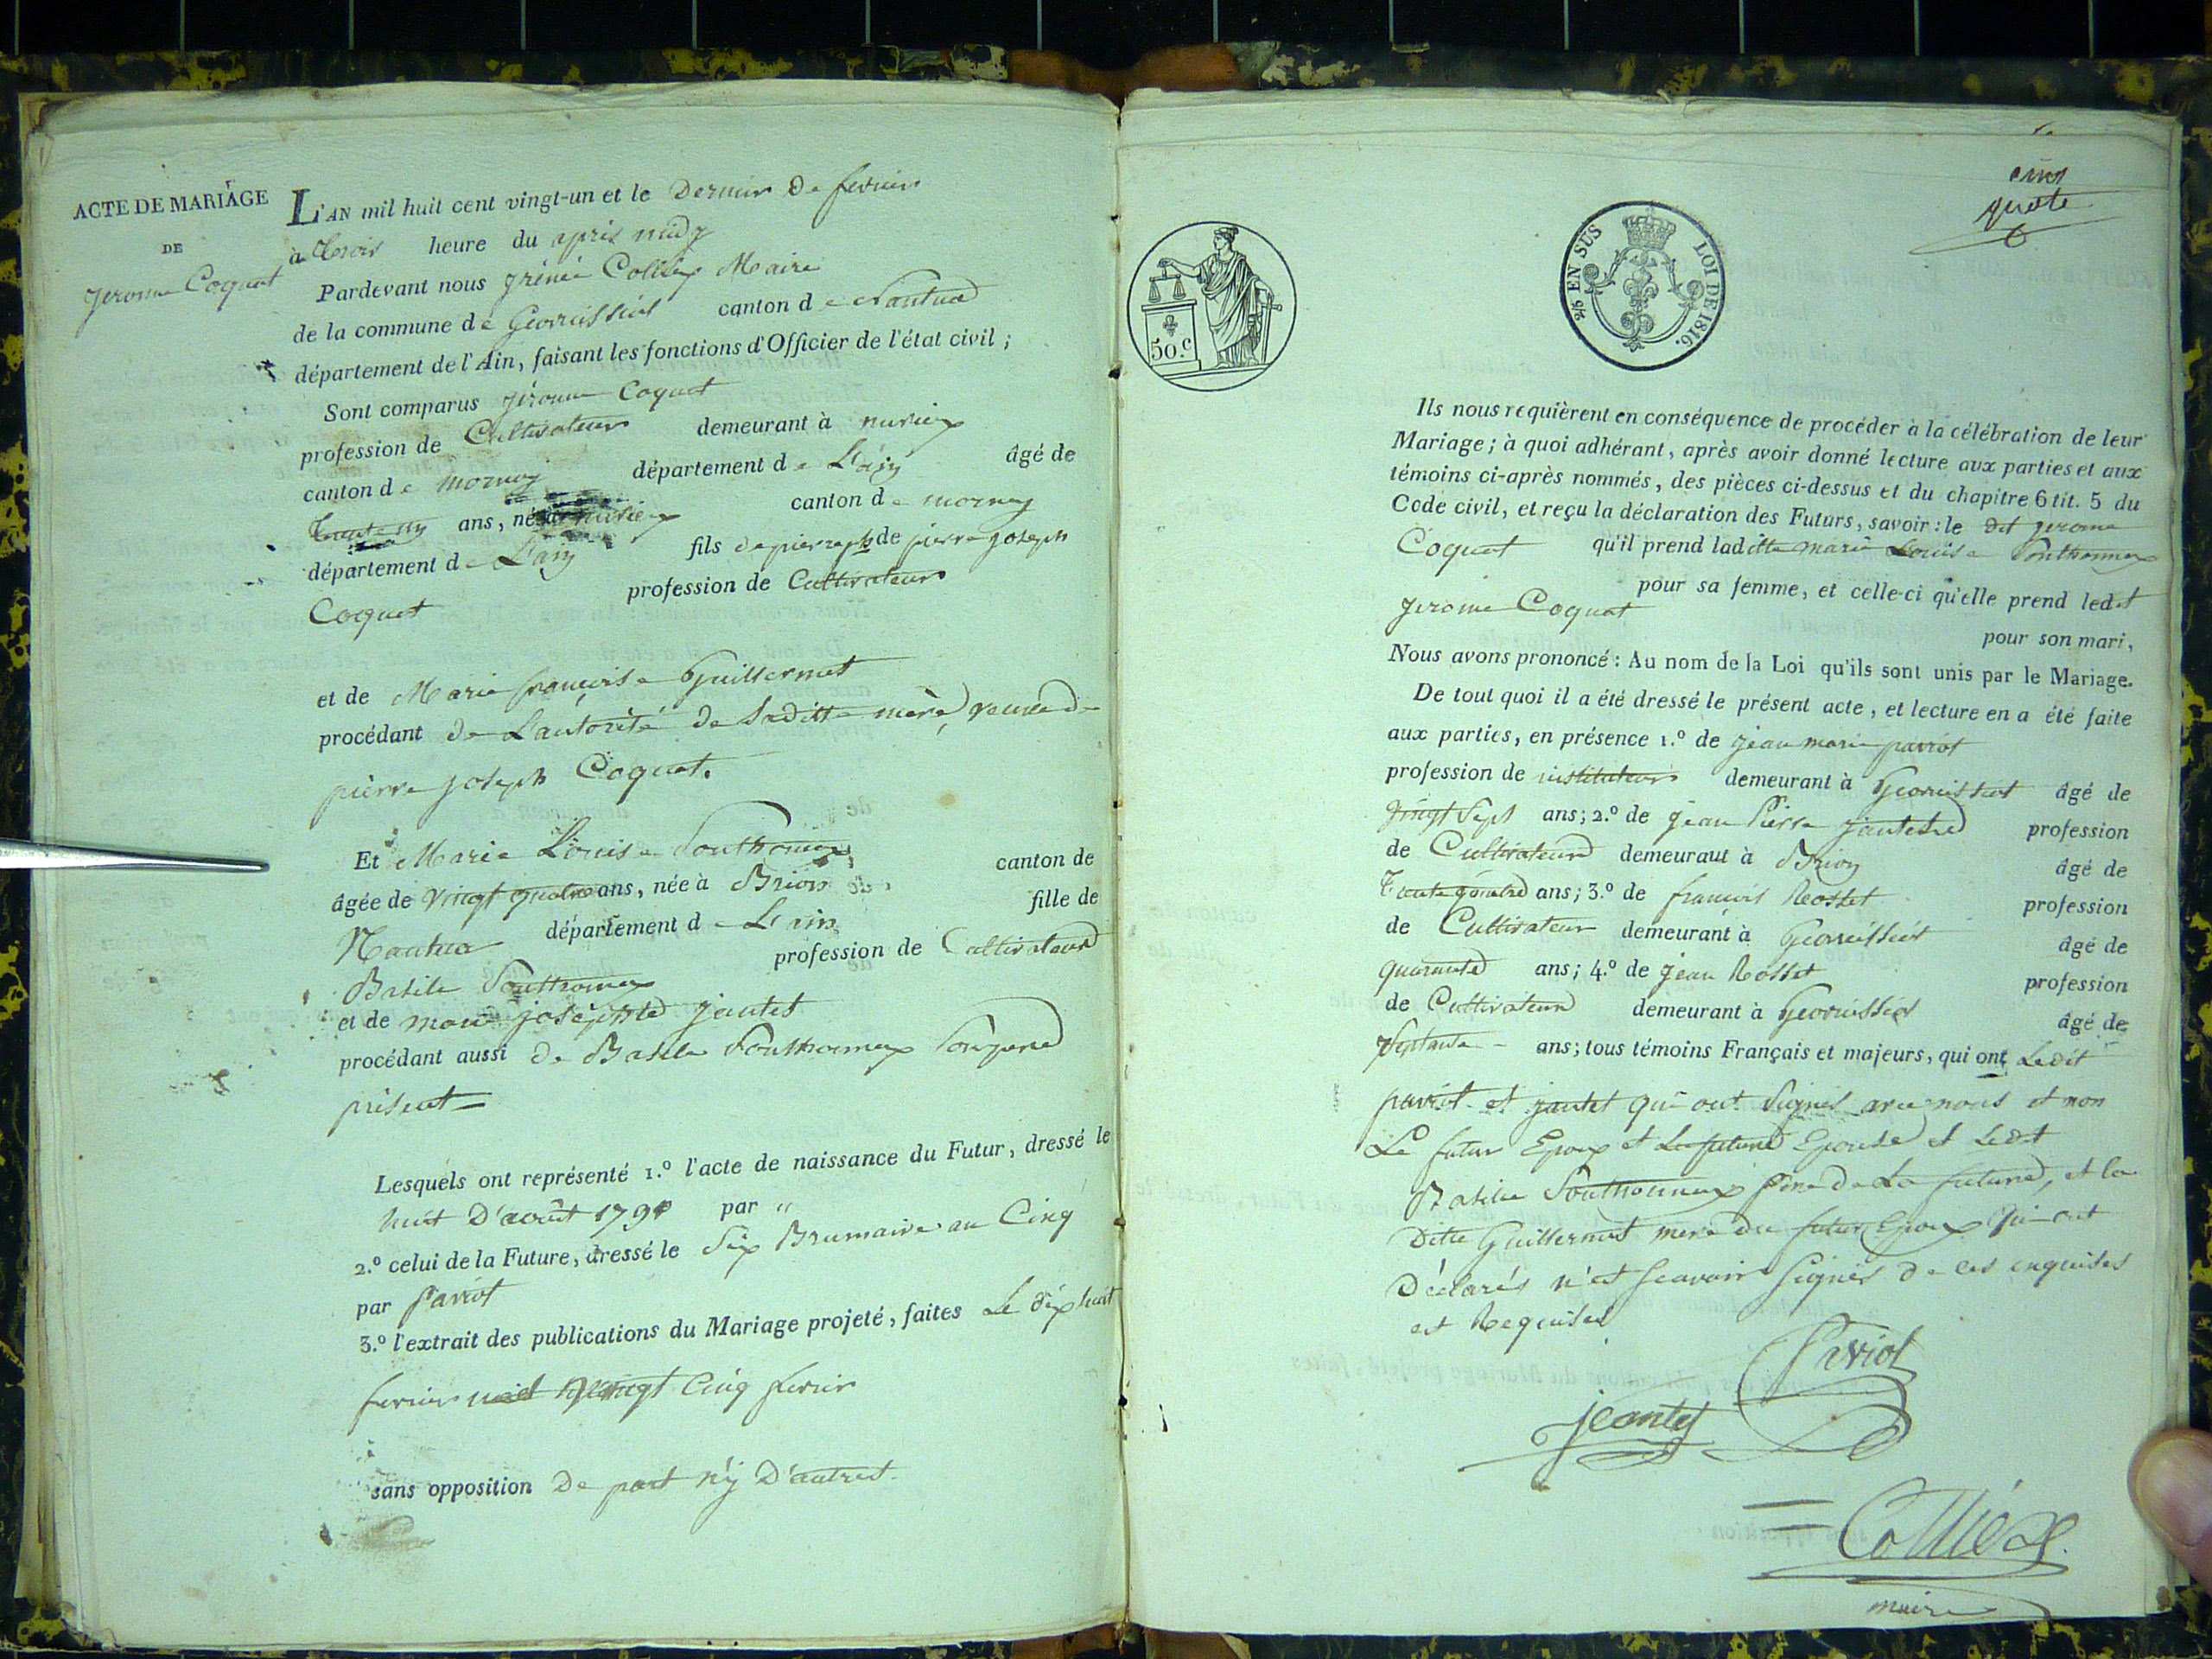 ACTE DE MARIAGE
DE
jerome Coquet
L'AN mil huit cent vingt-un et le Dernier de fevrier
à trois heure du apris midy
Pardevant nous Maire
de la commune de Geovreissiat canton de Nantua
département de l'Ain, faisant les fonctions d'Officier de l'état civil ;
Sont comparus jérome Coquet
profession de Cultivateur demeurant à nurieux
canton de mornay département de L'ain âgé de
trente un ans, né à nurieux canton de mornay
département de L'ain fils de pierre joseph
Coquet profession de Cultivateur
et de Marie françoise Guillermet
procédant de L'autorité de Saditte mere veuve de
pierre joseph Coquet.
Et Marie Louise Southonnex
âgée de vingt quatre ans, née à Brion canton de
Nantua département de L'ain fille de
Basile Southonnex profession de Cultivateur
et de marie josephte jantet
procédant aussi de Basile Southonnex Son pere
présent
Lesquels ont représenté 1.º l'acte de naissance du Futur, dressé le
huit D'aoùt par "
2.º celui de la Future, dressé le Six Brumaire an Cinq
par Paviot
3.º l'extrait des publications du Mariage projeté, faites Le dix huit
fevrier vingt Cinq fevrier
sans opposition De part n'y D'autres.
50.c
2/5 EN SUS LOI DE 1816.
Ils nous requièrent en conséquence de procéder à la célébration de leur
Mariage ; à quoi adhérant, après avoir donné lecture aux parties et aux
témoins ci-après nommés, des pièces ci-dessus et du chapitre 6 tit. 5 du
Code civil, et reçu la déclaration des Futurs, savoir : le dit jerome
Coquet qu'il prend laditte marie Louise Southonnex
pour sa femme, et celle-ci qu'elle prend ledit
jerome Coquet pour son mari,
Nous avons prononcé : Au nom de la Loi qu'ils sont unis par le Mariage.
De tout quoi il a été dressé le présent acte, et lecture en a été faite
aux parties, en présence 1.º de jean marie paviot
profession de instituteur demeurant à Geovreissiat âgé de
vingt Sept ans ; 2.º de jean Pierre jantet profession
de Cultivateur demeurant à Brion âgé de
trente quatre ans ; 3.º de francois Rosset profession
de Cultivateur demeurant à Geovreissiat âgé de
quarante ans ; 4.º de jean Rosset profession
de Cultivateur demeurant à Geovreissiat âgé de
Septante ans ; tous témoins Français et majeurs, qui ont Ledit
paviot et jantet qui ont Signés avec nous et non
Le futur Epoux et La future Epouse et Ledit
Basile Southonnex Pere de La future, et la
Ditte Guillermet mere du futur Epoux qui ont
Déclarés n'et Scavoir Signés de ces enquises
et Requises
Paviot
jeantet
Collier
maire